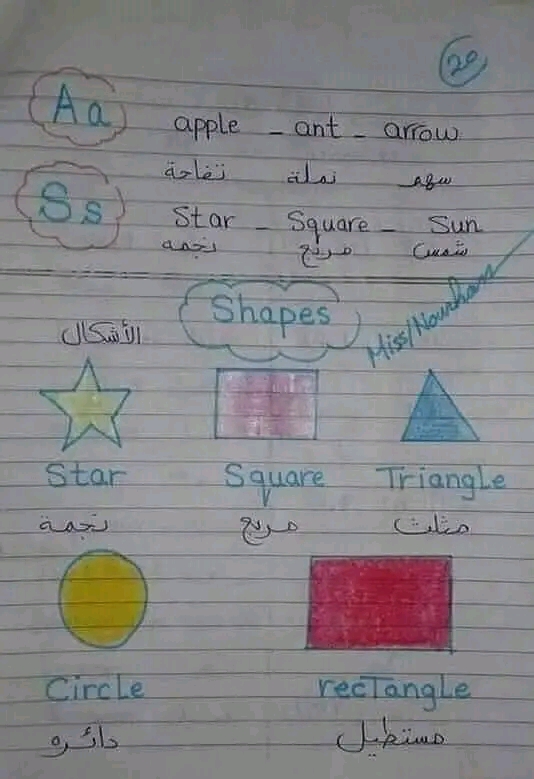 20
Aa apple - ant - arrow
تفاحة نملة سهم
Ss Star - Square - Sun
نجمه مربع شمس
Shapes
Miss/Nourhan
الأشكال
Star Square Triangle
نجمة مربع مثلث
Circle recTangle
دائره مستطيل